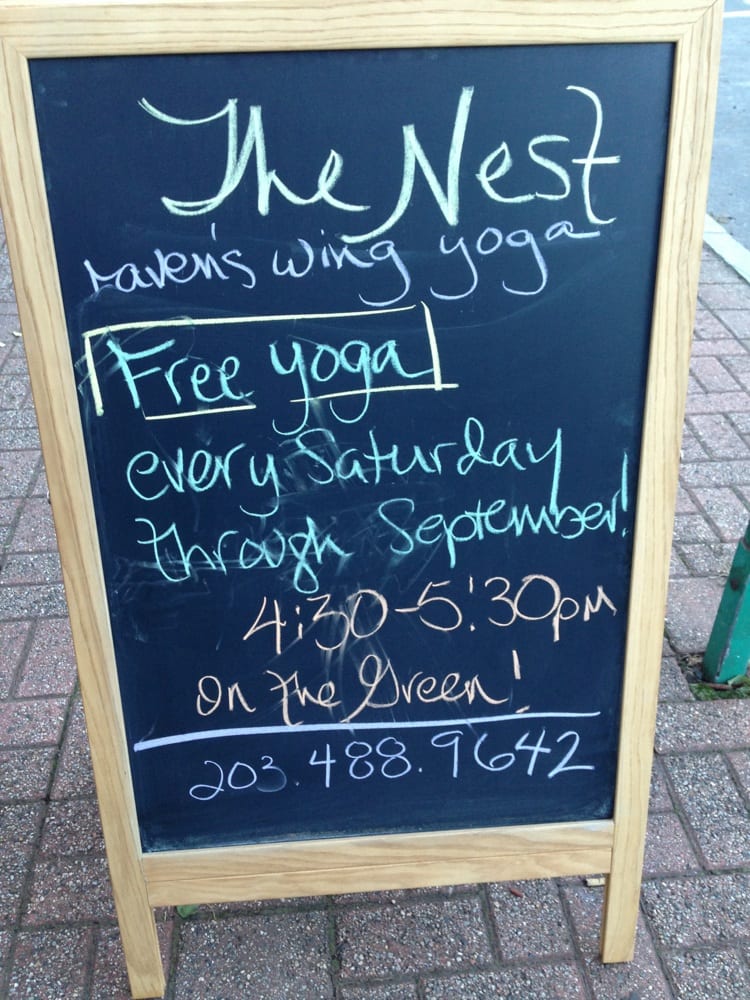 The Nest
raven's wing yoga
Free yoga
every Saturday
through September!
4:30-5:30pm
on the Green!
203.488.9642